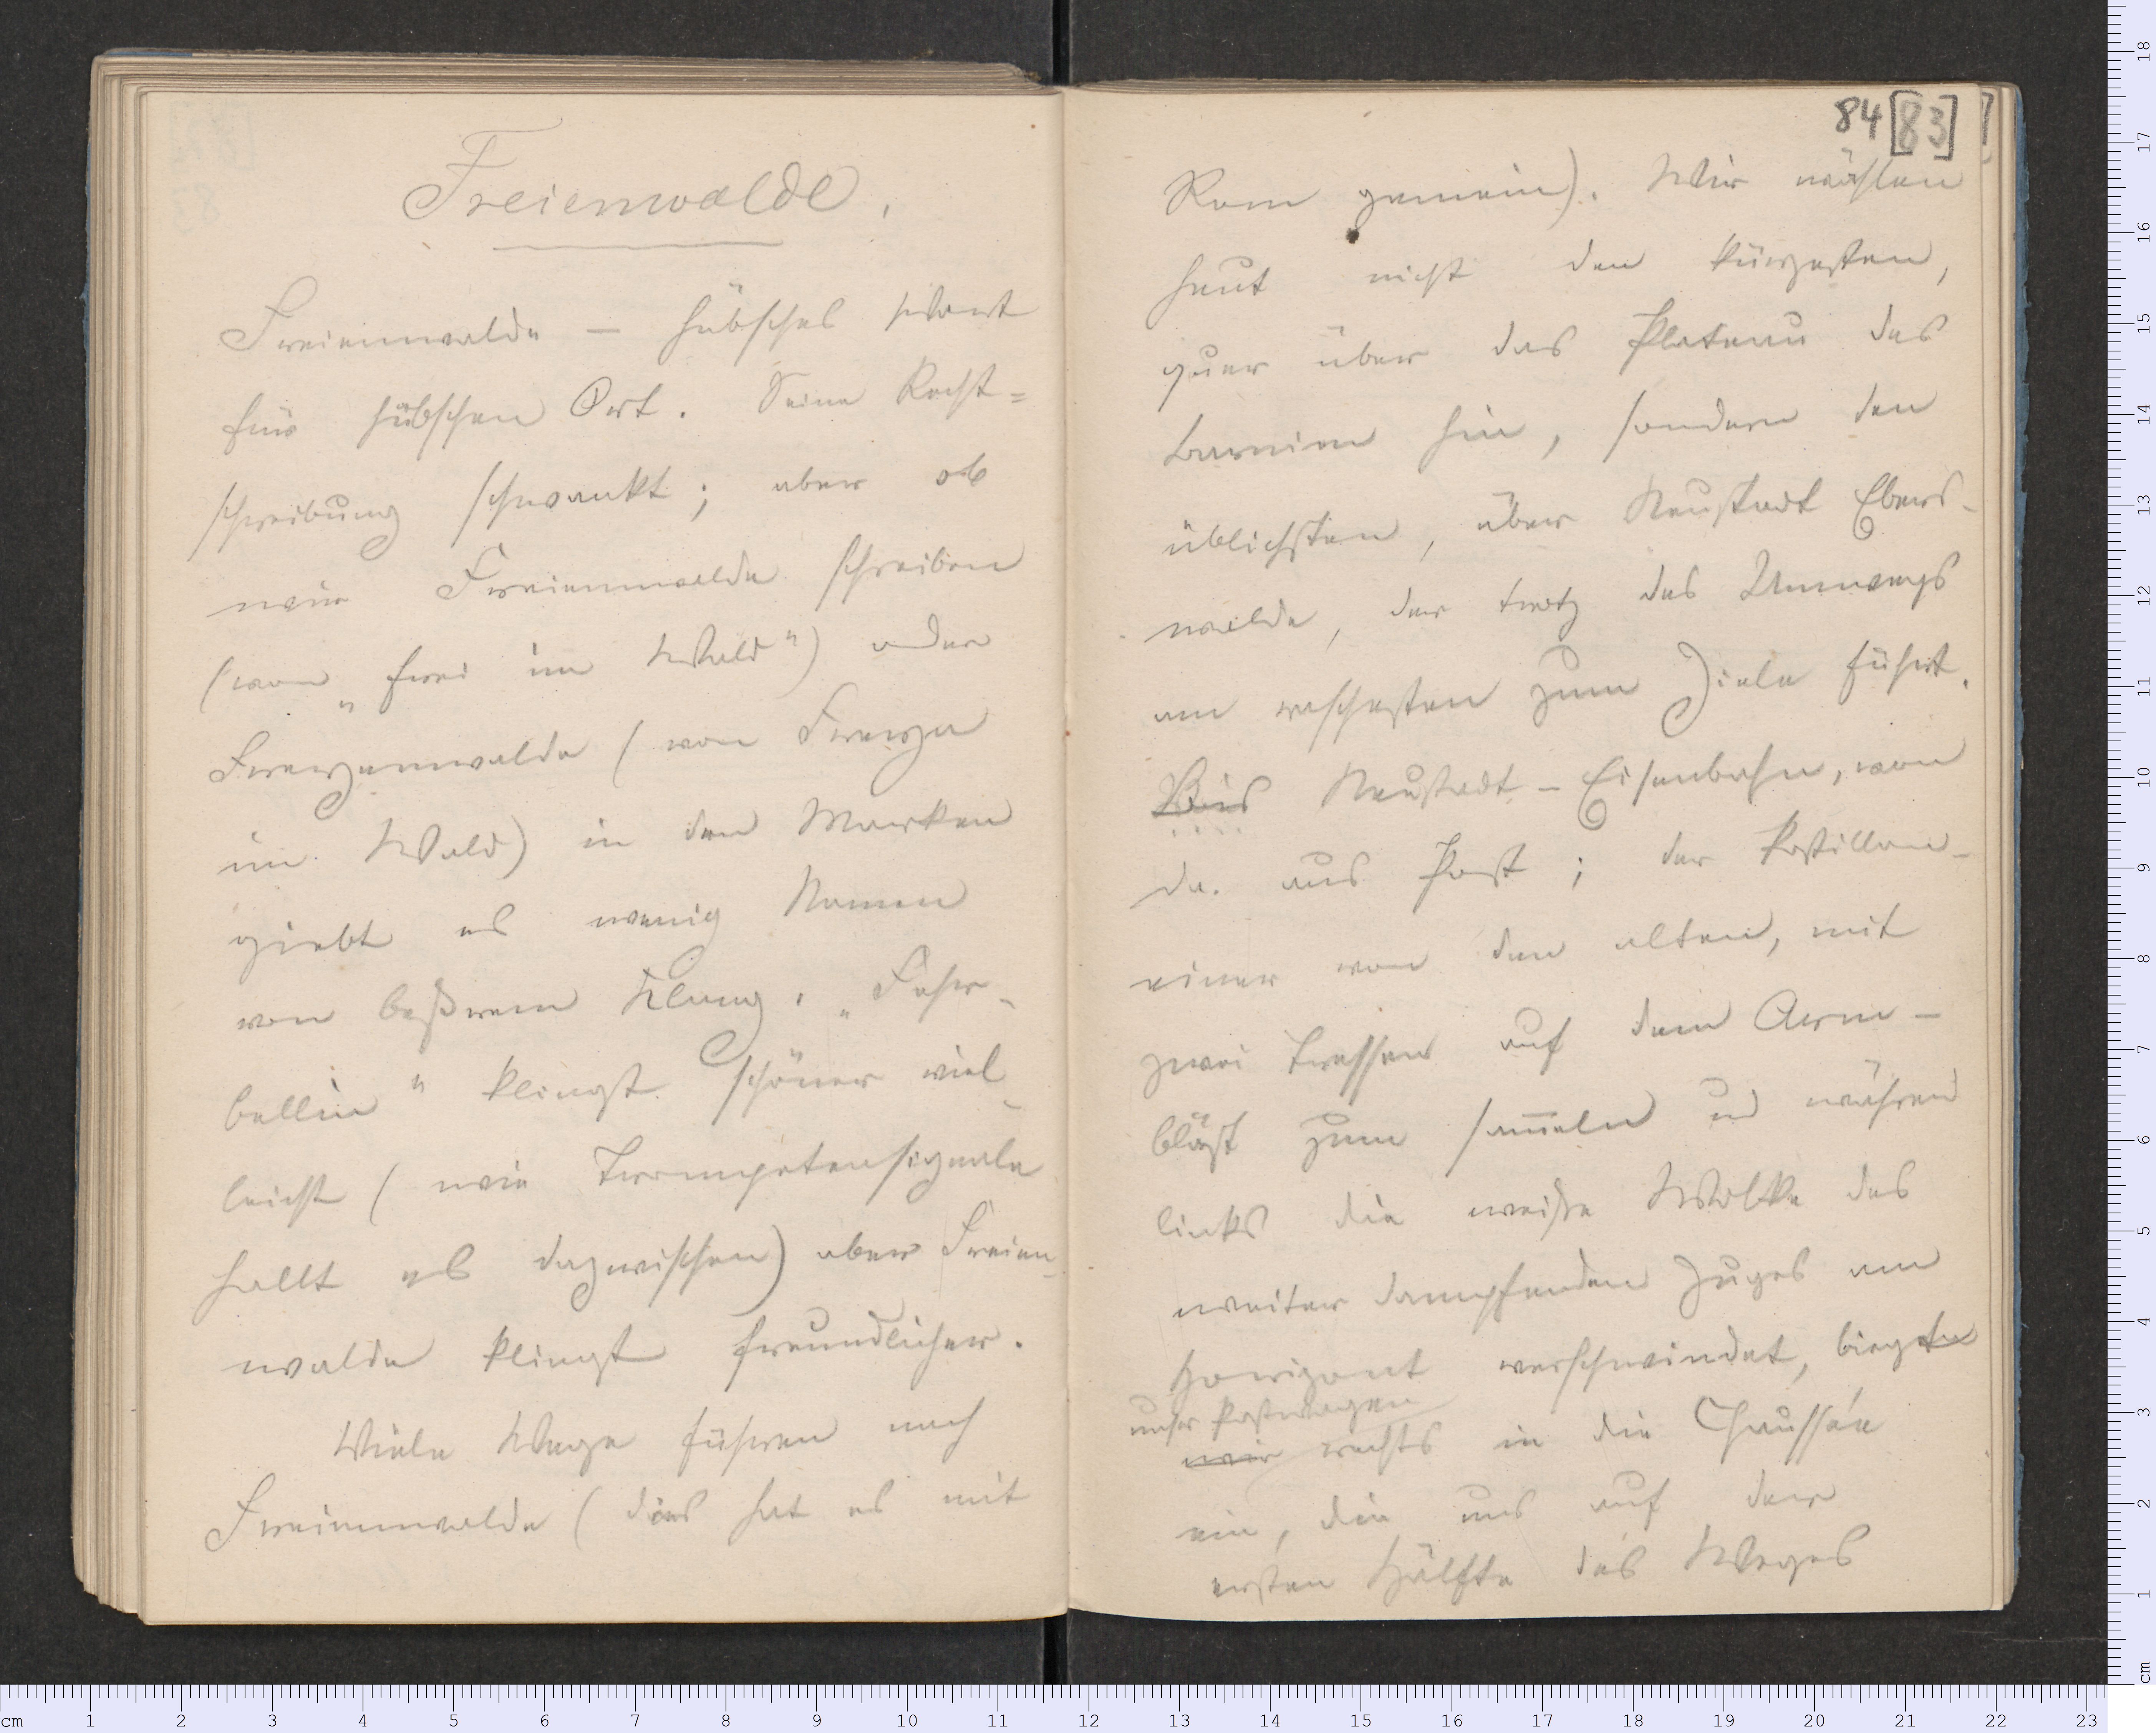 Freienwalde.
Freienwalde – hübsches Wort
für hübschen Ort. Seine Recht=
schreibung schwankt; aber ob
wir Freienwalde schreiben
(von „frei im Wald“) oder
Freyenwalde (von Freya
im Wald) in den Marken
giebt es wenig Namen
von beßrem Klang. „Fehr-
bellin“ klingt schöner viel-
leicht (wie Trompetensignale
hallt es dazwischen) aber Freien-
walde klingt freundlicher.
Viele Wege führen nach
Freienwalde (dies hat es mit
84 [83]
Rom gemein). Wir wählen
heut nicht den kürzesten,
quer über das Plateau des
Barnim hin, sondern den
üblichsten, über Neustadt Ebers-
walde, der trotz des Umwegs
am raschesten zum Ziele führt.
Bis Neustadt – Eisenbahn, von
da aus Post; der Postillon –
einer von den alten, mit
zwei Tressen auf dem Arm –
bläst zum sam̅eln und während
links die weiße Wolke des
weiter dampfenden Zuges am
Horizont verschwindet, biegten
unser Postwagen
wir rechts in die Chaussée
ein, die uns auf der
ersten Hälfte des Weges